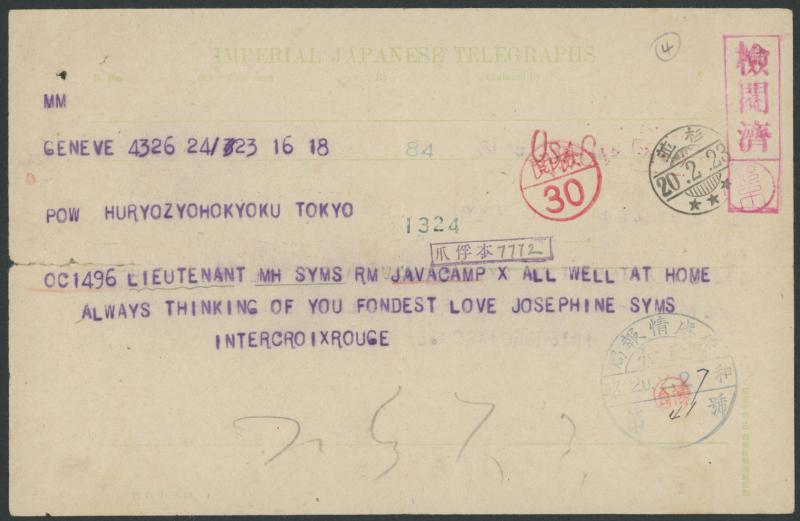 IMPERIAL JAPANESE TELEGRAPHS
4
檢閲濟
MM
GENEVE 4326 24/23 16 18
84
30
20.2.23
POW HURYOZYOHOKYOKU TOKYO
1324
爪俘本7772
OC1496 LIEUTENANT MH SYMS RM JAVACAMP X ALL WELL AT HOME
ALWAYS THINKING OF YOU FONDEST LOVE JOSEPHINE SYMS
INTERCROIXROUGE
情報局
和
第 41 號